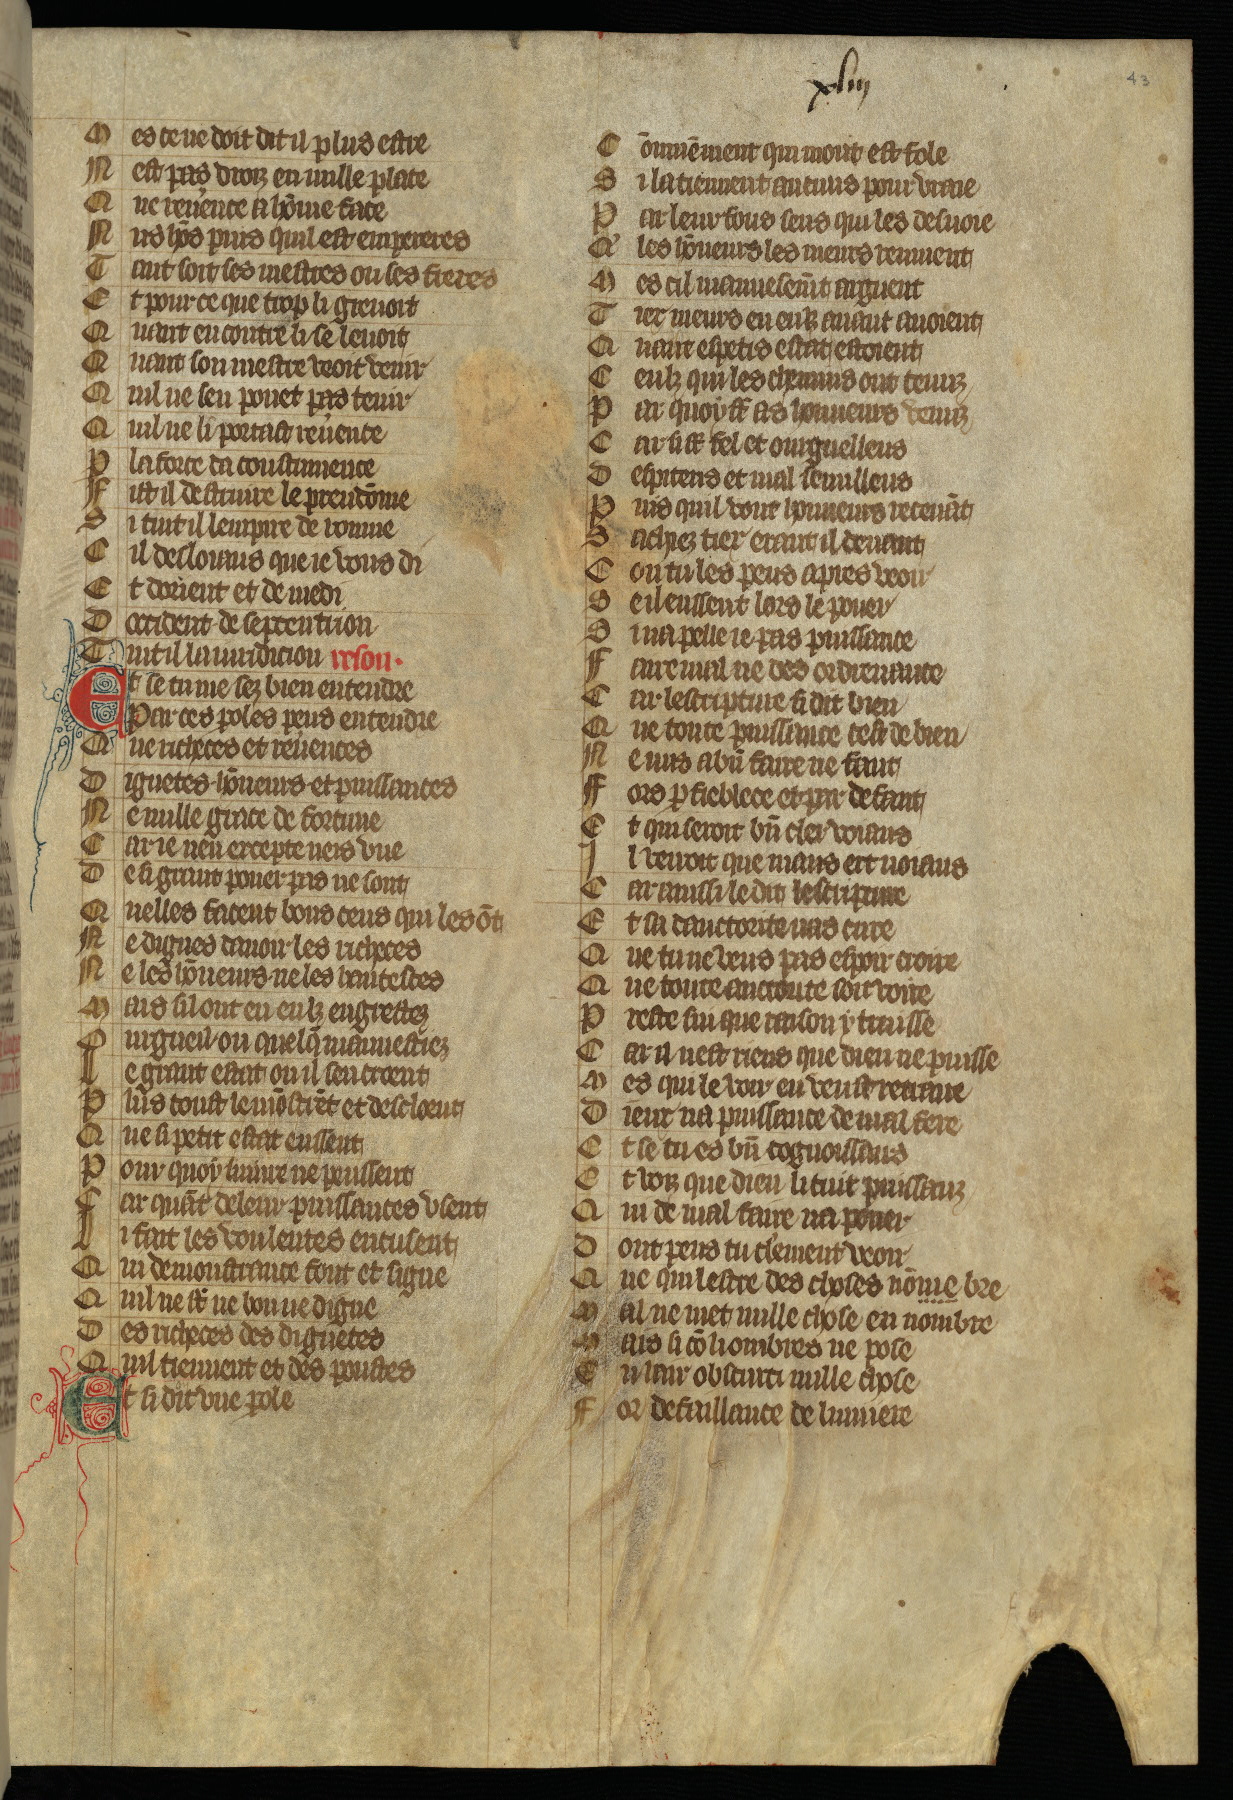 xliii
43
Mes ce ne doit dit il plus estre
Nest pas droiz en nulle place
Que reuence a hõme face
Nus hõs puis quil est empereres
Tant soit ses mestres ou ses freres
Et pour ce que trop li greuoit
Quant encontre li se leuoit
Quant son mestre veoit venir
Quil ne sen pouet pas tenir
Quil ne li portast reuence
Par la force da coustumence
Fist il destruire le preudõme
Si tint il lempire de romme
Cil desloiaus que ie vous di
Et dorient et de medi
Doccident de septentrion
Tint il la iuridicion reson.
Et se tu me sez bien entendre
Par ces poles peus entendre
Que richeces et reuences
Dignetes hõneurs et puissances
Ne nulle grace de fortune
Car ie nen excepte neis vne
De si grant pouer pas ne sont
Quelles facent bons ceus qui les õt
Ne dignes dauoir les richeces
Ne les hõneurs ne les hautesces
Mais sil ont en eulz engrestez
Ourgueil ou quelq mauuestiez
Le grant estat ou il sen croent
Plus tost le mõstrẽt et descloent
Que si petit estat eussent
Pour quoy nuire ne peussent
Car quãt de leur puissances vsent
Li fait les voulentes encusent
Qui demonstrance font et signe
Quil ne sõt ne bon ne digne
Des richeces des dignetes
Quil tiennent et des poustes
Et si dit vne pole
Cõmunement qui mout est fole
Si la tiennent aucuns pour vraie
Par leur fous sens qui les desuoie
Que les hõneurs les meurs remuent
Mes cil mauuesemt arguent
Tiex meurs en eulz auant auoient
Quant es petis estat estoient
Ceulz qui les chemins ont tenuz
Par quoy st as honneurs venuz
Car si st fel et ourguelleus
Despiteus et mal semilleus
Puis quil vont honneurs receuãt
Sachiez tiex erant il deuant
Con tu les peus apres veoir
Se il eussent lors le pouer
Si napelle ie pas puissance
Faire mal ne des ordrenance
Car lescripture si dit bien
Que toute puissance cest de bien
Ne nus a bñ faire ne faut
Fors p fieblece et par defaut
Et qui seroit bñ cler voians
Il verroit que maus est noians
Car aussi le dit lescripture
Et si dauctorite nas cure
Que tu ne veus pas espoir croire
Que toute auctorite soit voire
Preste sui que raison y truisse
Car il nest riens que dieu ne puisse
Mes qui le voir en veust retraire
Diex na puissance de mal fere
Et se tu es bñ cognoissans
Et voiz que dieu li tout puissanz
Qui de mal faire na pouer
Dont peus tu clement veoir
Que qui lestre des choses nõme bre
Mal ne met nulle chose en nombre
Mais si cõ li ombres ne pose
En lair obscurci nulle chose
For defaillance de lumiere